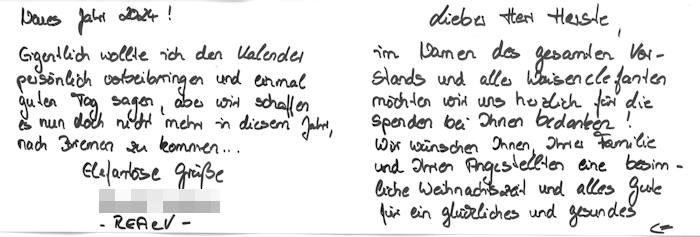 Lieber Herr Herste,
im Namen des gesamten Vor-
stands und aller Waisenelefanten
möchten wir uns herzlich für die
Spenden bei Ihnen bedanken!
Wir wünschen Ihnen, Ihrer Familie
und Ihren Angestellten eine besinn-
liche Weihnachtszeit und alles Gute
für ein glückliches und gesundes
<=
Neues Jahr 2024!
Eigentlich wollte ich den Kalender
persönlich vorbeibringen und einmal
guten Tag sagen, aber wir schaffen
es nun doch nicht mehr in diesem Jahr,
nach Bremen zu kommen...
Elefantöse Grüße
- REA eV -